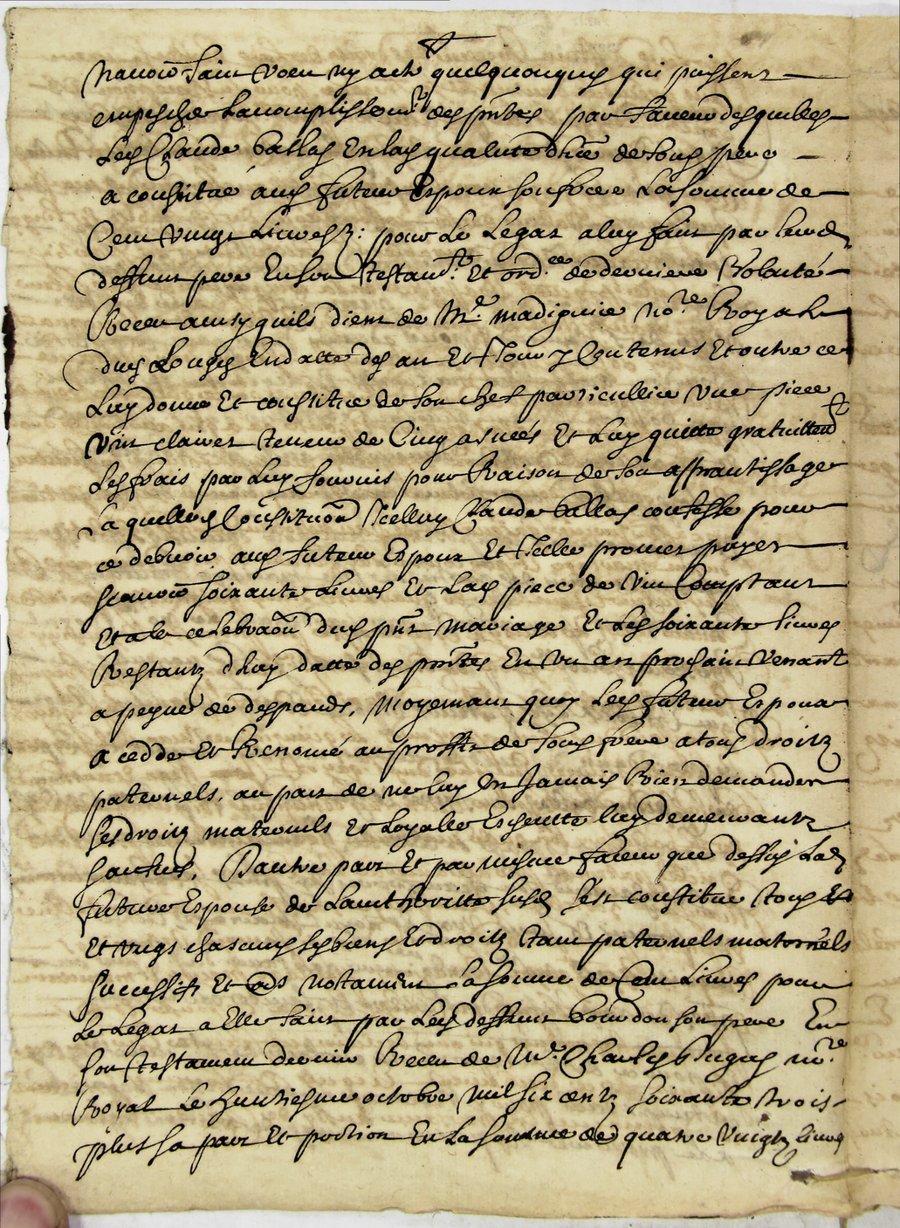 n'avoir faict voeu ny acte quelquonques qui puissent
empescher l'acomplissem.t des p̃ntes par faveur desquelles
led Claude ballas en lad quallitté d'hér de sond pere
a constitué aud futeur Espoux son frere la somme de
Cent vingt Livres tz: pour le legat a luy faict par leurd
deffunt pere En son testam.t Et ord.ce de derniere Volonté
Receu ainsy quils dient de M.e madiguier no.re Royal
dud En datte des an Et Jour y Contenus Et outre ce
Luy donne Et constitue de son chef particullier une piece
vin clairet teneur de Cinq asnées Et Luy quitte gratuittem.t
Les frais par Luy fournis pour Raison de son apprantissage
la quelle Constituõn Icelluy Claude ballas confesse pour
ce debvoir aud futeur Espoux Et Icelle promet payer
scavoir soixante Livres Et Lad piece de vin Comptant
Et a la celebraõn dud p̃nt mariage Et Les soixante livres
Restantz d'huy datte des p̃ntes En un an prochain venant
a peyne de despands, moyenant quoy Led futeur Espoux
a ceddé Et Renoncé au proffit de sond frere a tous droitz
paternels, au pact de ne luy En Jamais Rien demander
ses droitz maternels Et Loyalle Escheutte luy demeurantz
saufves, D'autre part Et par mesme faveur que dessus Lad
future Espouse de L'authoritte susd s'est constitue tous Et
Et ungs chascungs ses biens Et droitz tant paternels maternels
successifs Et aũs notament La somme de Cent Livres pour
Le Legat a Elle faict par Led deffunt bourdon son pere En
son testament dernier Receu de M.e Charles no.re
Royal Le huictiesme octobre mil six centz soixante trois
plus sa part Et portion En La somme de quatre vingtz livres